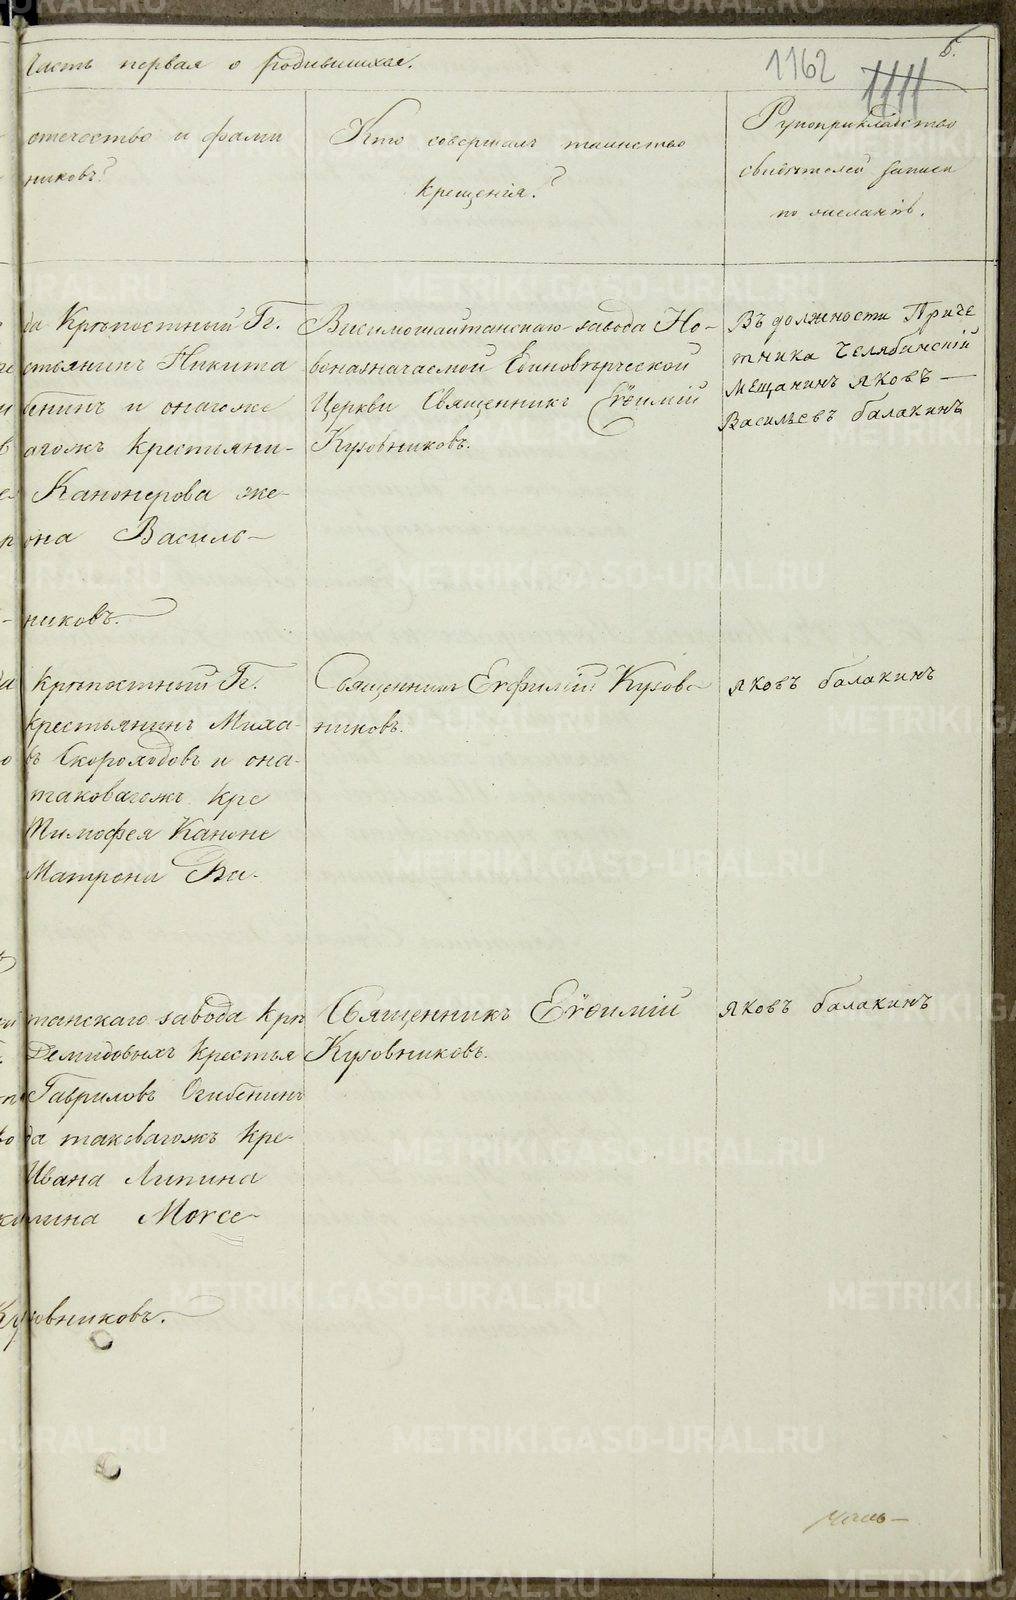 Часть первая о родившихся.
1162
1111
6.
отечество и фами
никовъ?
Кто совершалъ таинство
крещенія?
Рукоприкладство
свидѣтелей записи
по желанію.
да Крѣпостный Гг.
стьянинъ Никита
бенинъ и онагоже
агожъ крестьяни-
Канонерова же-
она Василь-
никовъ.
Висимошайтанскаго завода Но-
воназначаемой Единовѣрческой
Церкви Священникъ Евѳимій
Кузовниковъ.
Въ должности Приче
тника Челябинскій
мещанинъ яковъ
Васильевъ балакинъ
крѣпостный Гг.
крестьянинъ Миха-
въ Скороходовъ и она-
таковагожъ кре
Тимофея Каноне
Матрена Ва-
Священникъ Евфимій Кузов-
никовъ.
яковъ балакинъ
танскаго завода крѣ
Демидовыхъ крестья
Гавриловъ Огибенинъ
да таковагожъ кре-
Ивана Липина
лина Моисе-
Кузовниковъ.
Священникъ Евѳимій
Кузовниковъ.
яковъ балакинъ
METRIKI.GASO-URAL.RU